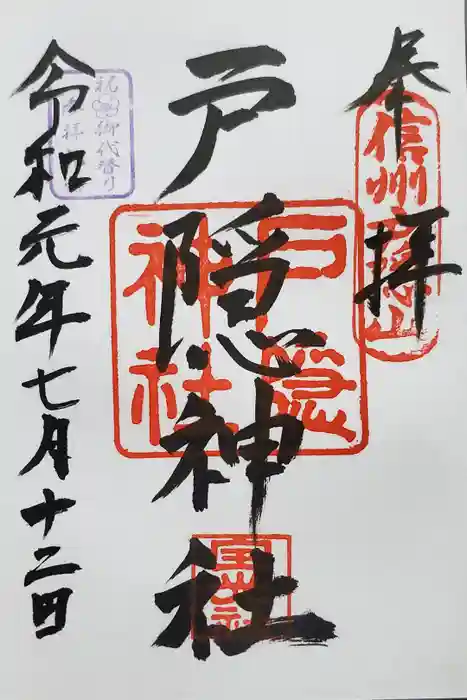 奉拝
信州戸隠山
戸隠神社
戸隠
神社
令和元年七月十二日
祝御代替り